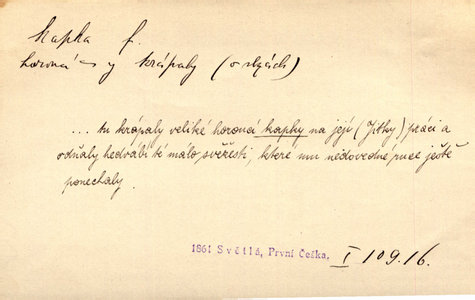 kapka f.
horoucí -y krápaly (o slzách)
... tu krápaly veliké horoucí kapky na její (Jitky) práci a
odňaly hedvábí té málo svěžesti, které mu nedovedné ruce ještě
ponechaly.
1861 Světlá, První Češka. I 109.16.